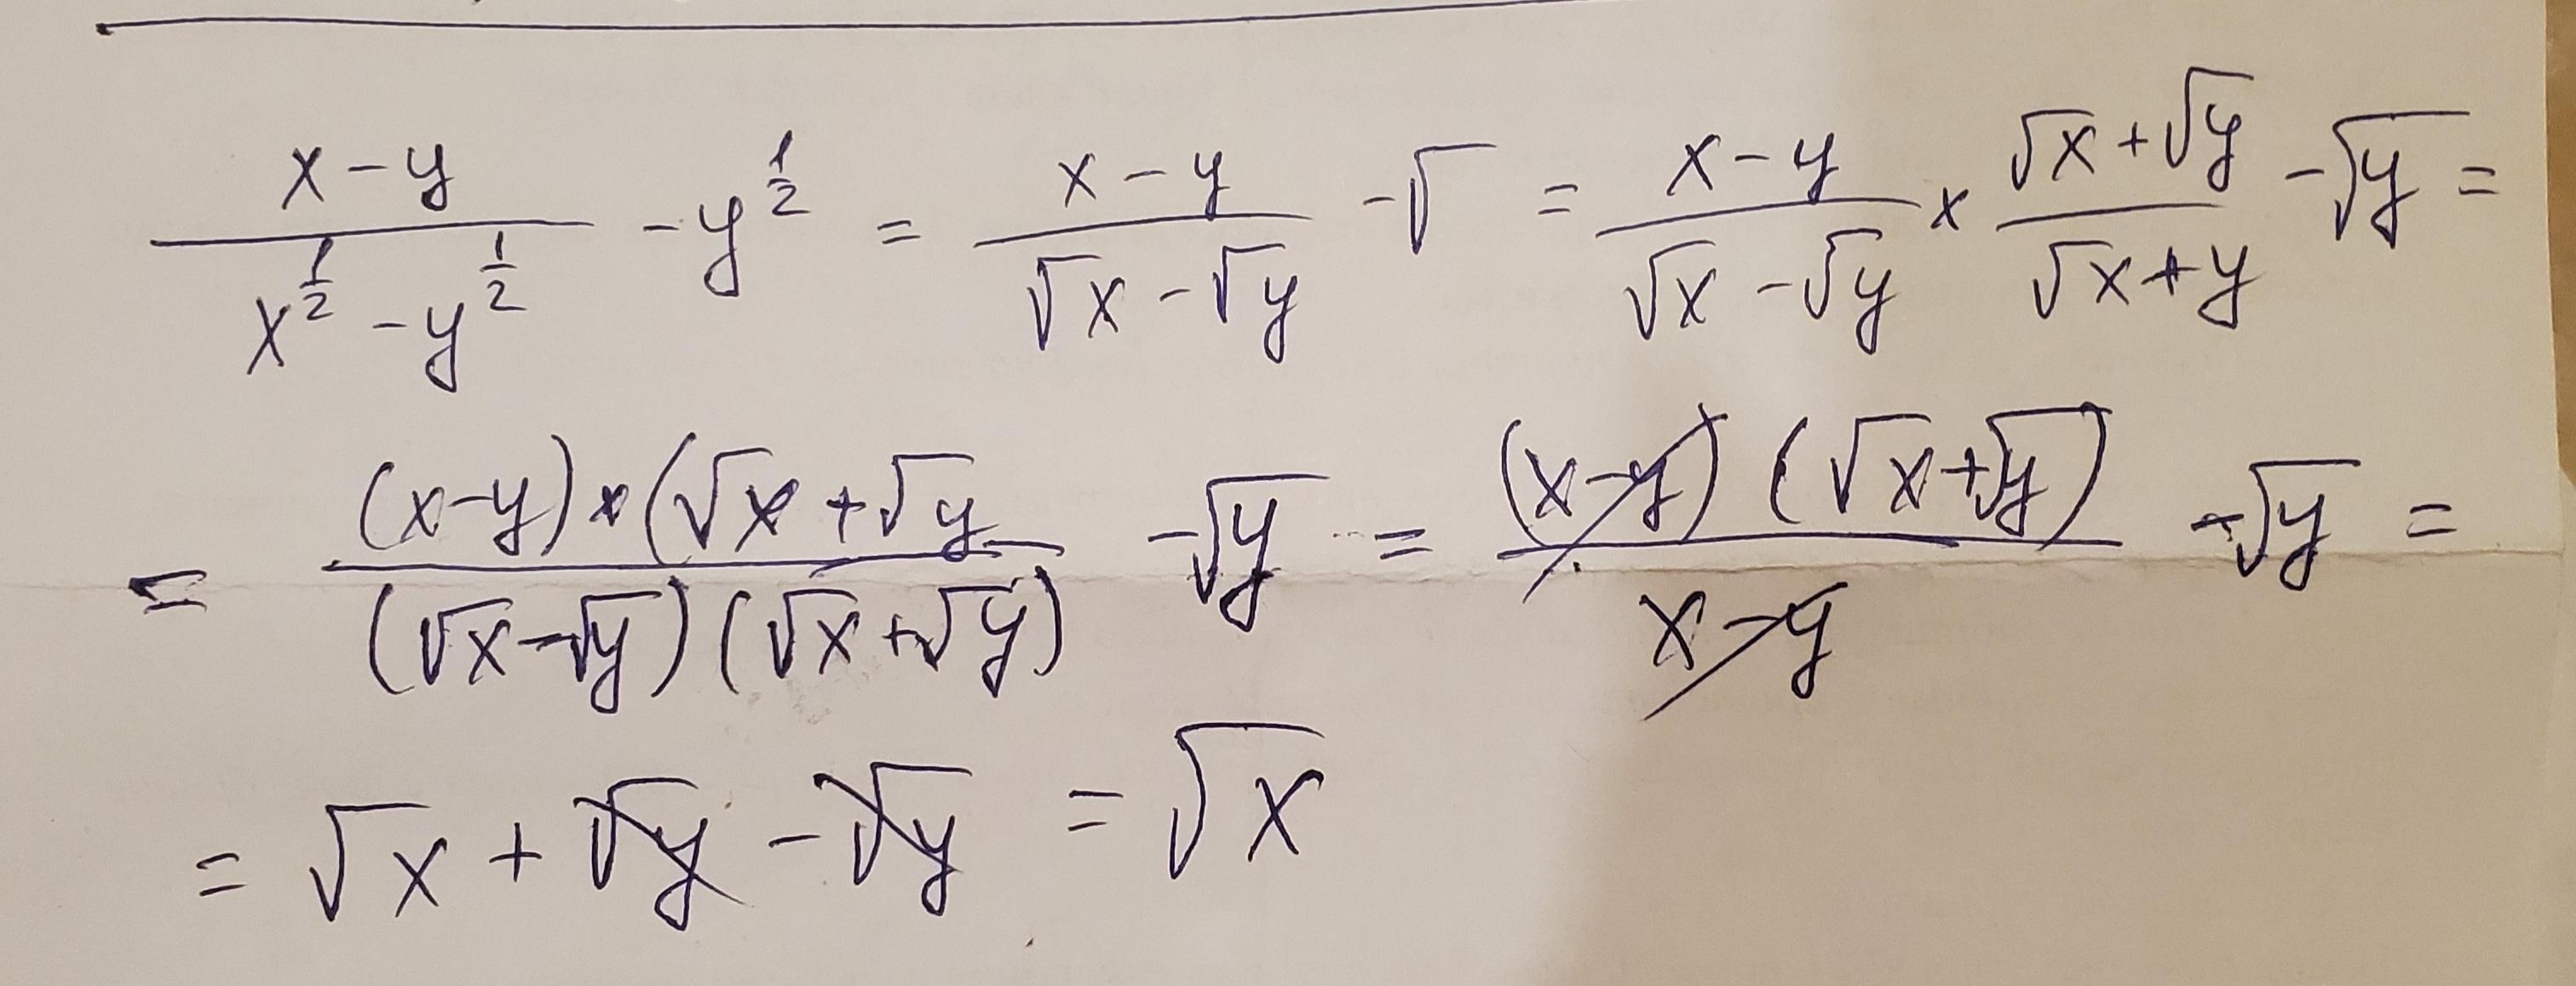 (x-y)/(x^(1/2)-y^(1/2)) -y^(1/2) = (x-y)/(√x-√y) -√ = (x-y)/(√x-√y) × (√x+√y)/(√x+y) -√y =
= ((x-y)×(√x+√y)/((√x-√y)(√x+√y)) -√y = ((x-y)(√x+√y))/(x-y) -√y =
= √x+√y-√y = √x